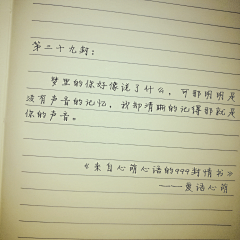 第二十九封：
梦里的你好像说了什么，可那明明是
没有声音的记忆，我却清晰的记得那就是
你的声音。
《来自心萌心话的999封情书》
——爱话心萌